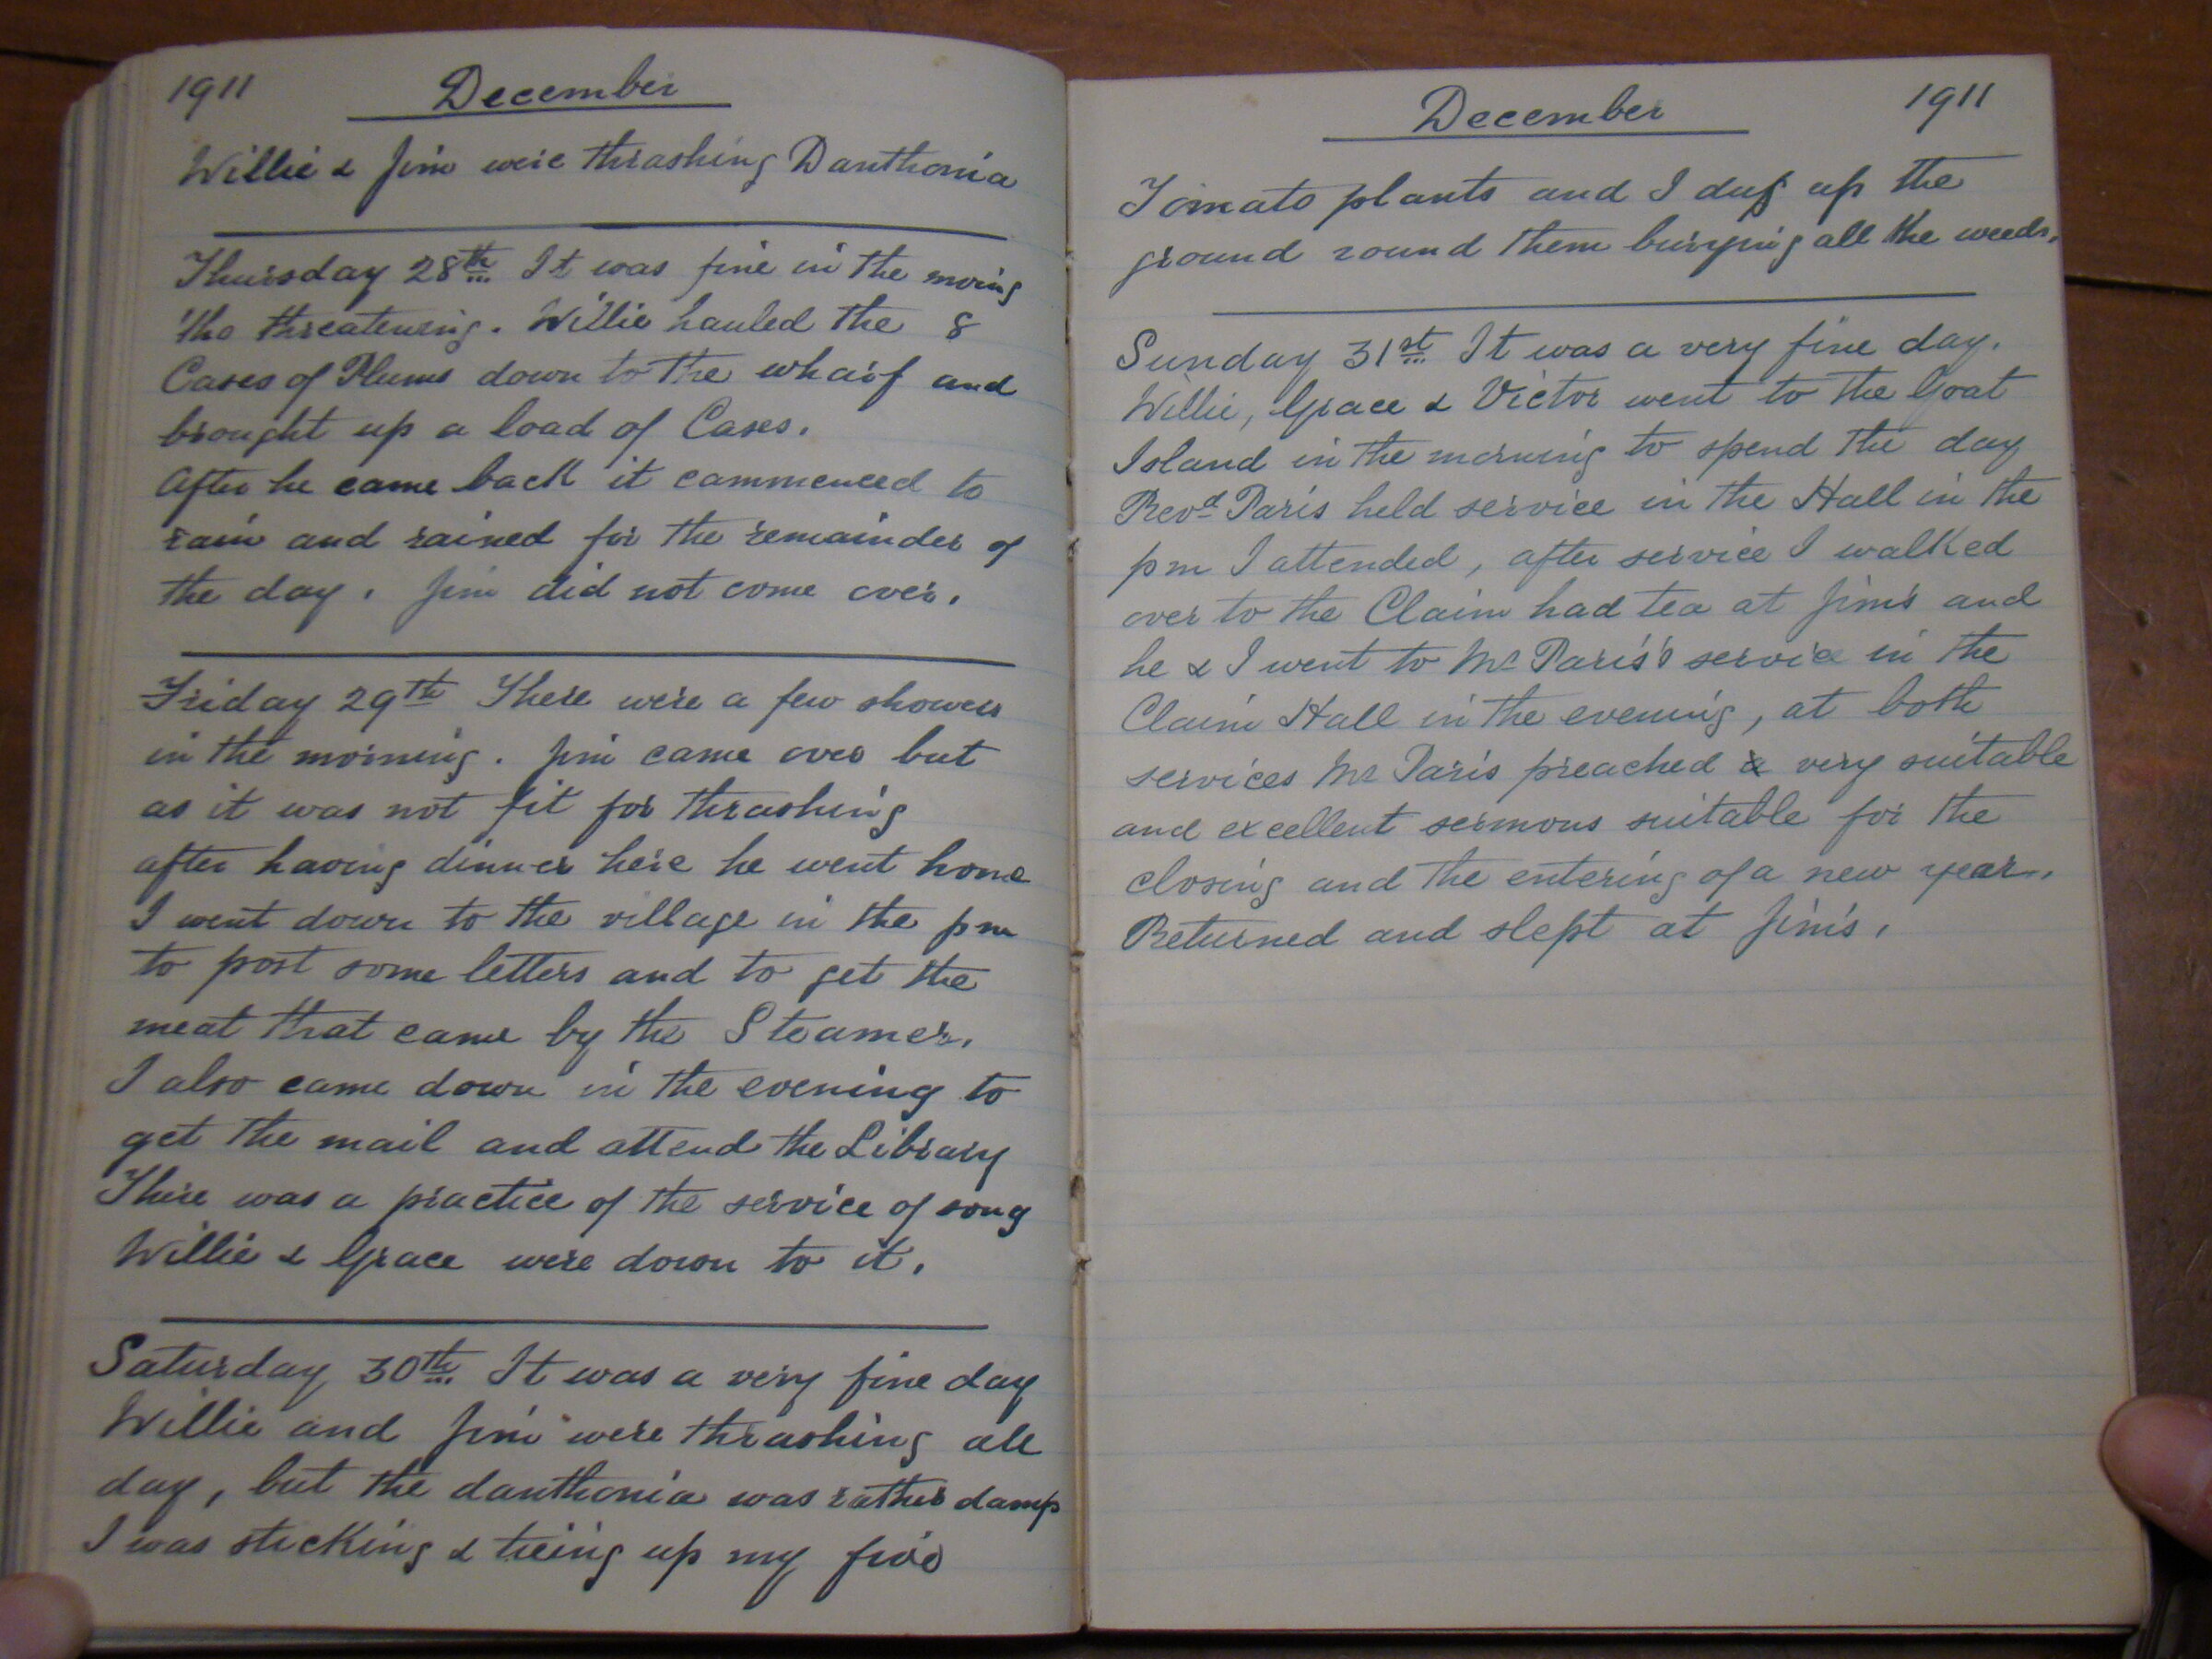 1911 December
Willie & Jim were thrashing Danthonia
Thursday 28th It was fine in the moing
'tho threatening. Willie hauled the 8
Cases of Plums down to the wharf and
brought up a load of Cases.
After he came back it commenced to
rain and rained for the remainder of
the day. Jim did not come over.
Friday 29th There were a few showers
in the morning. Jim came over but
as it was not fit for thrashing
after having dinner here he went home
I went down to the village in the pm
to post some letters and to get the
meat that came by the Steamer.
I also came down in the evening to
get the mail and attend the Library
There was a practice of the service of song
Willie & Grace were down to it.
Saturday 30th It was a very fine day
Willie and Jim were thrashing all
day, but the danthonia was rather damp
I was sticking & tieing up my five
December 1911
Tomato plants and I dug up the
ground round them burying all the weeds.
Sunday 31st It was a very fine day.
Willie, Grace & Victor went to the Goat
Island in the morning to spend the day
Revd Paris held service in the Hall in the
pm I attended, after service I walked
over to the Claim had tea at Jim's and
he & I went to Mr Paris's service in the
Claim Hall in the evening, at both
services Mr Paris preached a very suitable
and excellent sermons suitable for the
closing and the entering of a new year.
Returned and slept at Jim's.